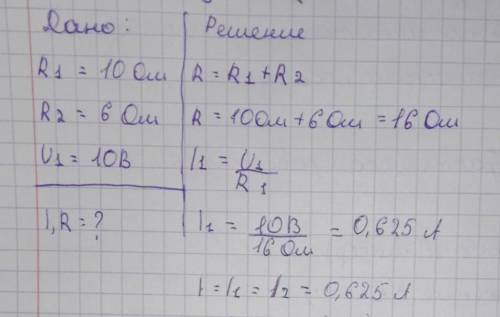 Дано:
R1 = 10 Ом
R2 = 6 Ом
U1 = 10В
I, R = ?
Решение
R = R1 + R2
R = 10 Ом + 6 Ом = 16 Ом
I1 = U1 / R1
I1 = 10В / 16 Ом = 0,625 А
I = I1 = I2 = 0,625 А